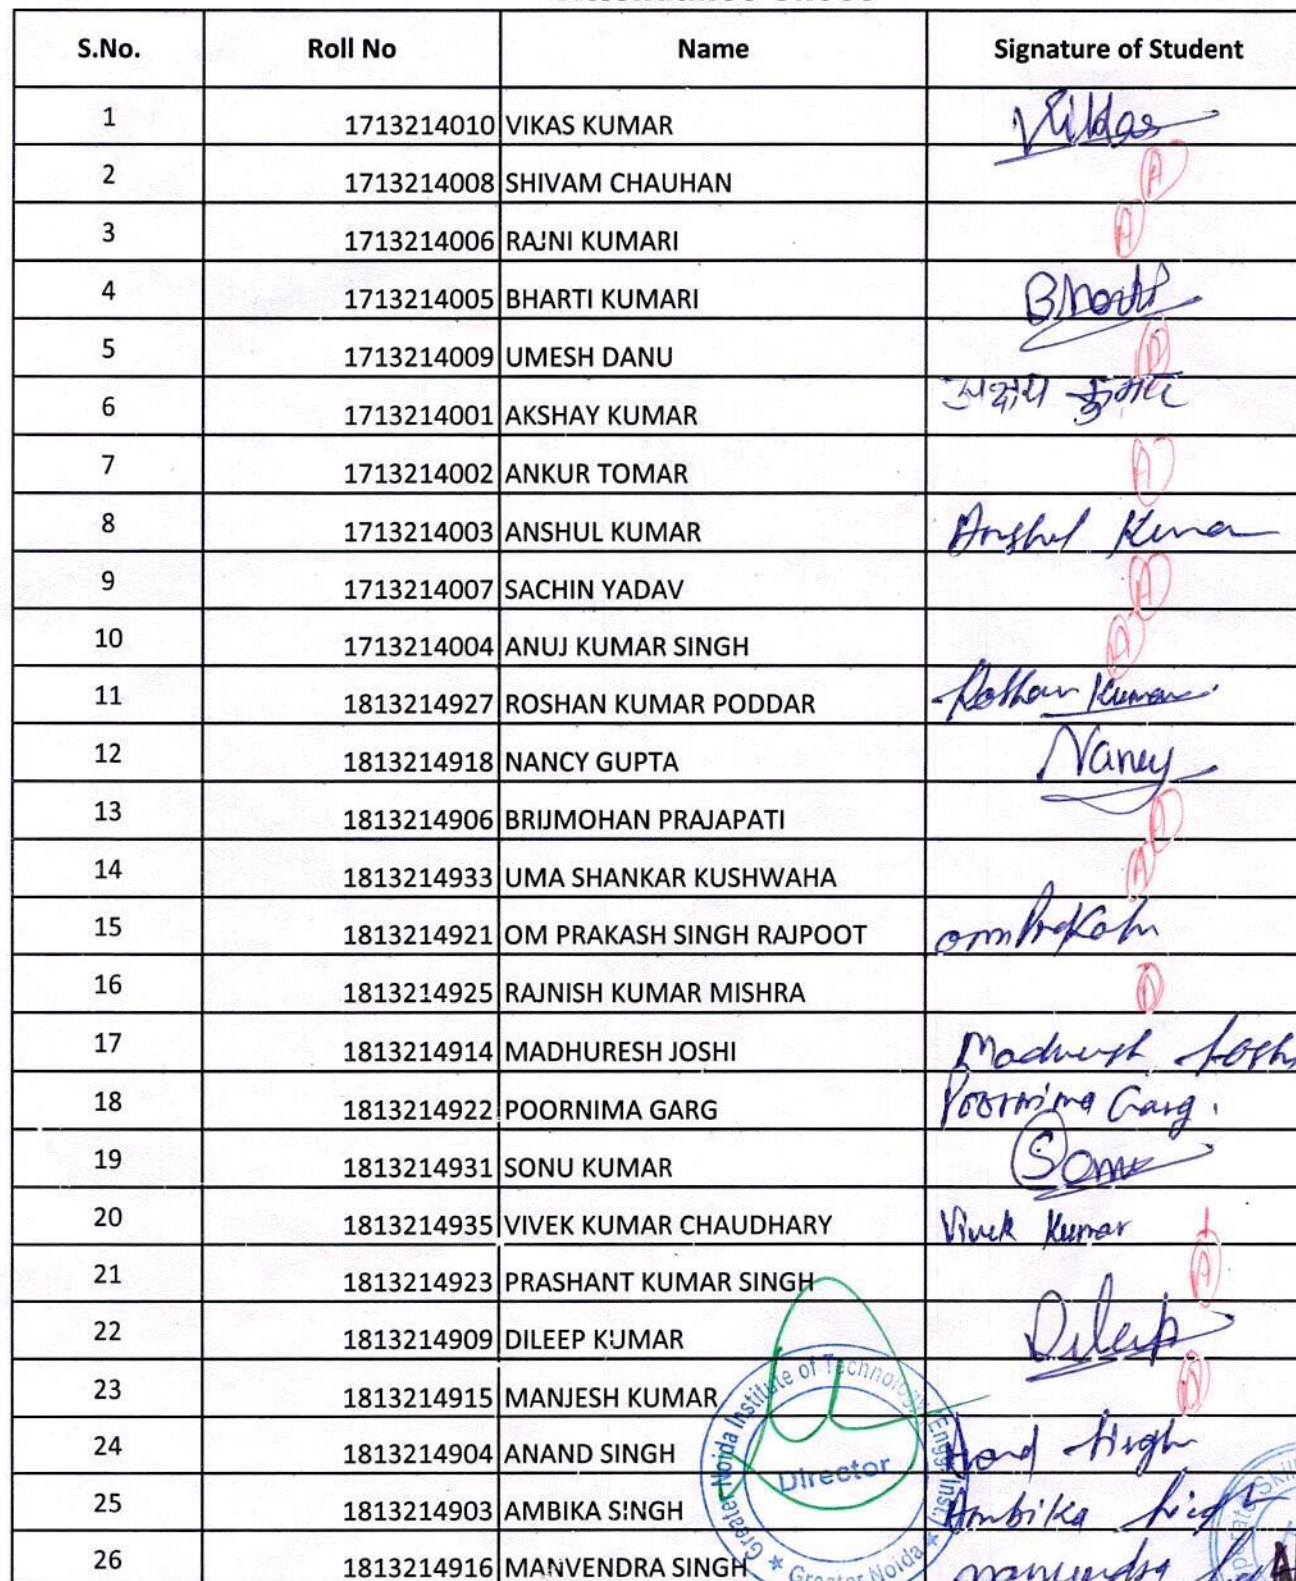 S.No. Roll No Name Signature of Student
1 1713214010 VIKAS KUMAR Vikas
2 1713214008 SHIVAM CHAUHAN A
3 1713214006 RAJNI KUMARI A
4 1713214005 BHARTI KUMARI Bharti
5 1713214009 UMESH DANU A
6 1713214001 AKSHAY KUMAR अक्षय कुमार
7 1713214002 ANKUR TOMAR A
8 1713214003 ANSHUL KUMAR Anshul Kumar
9 1713214007 SACHIN YADAV A
10 1713214004 ANUJ KUMAR SINGH A
11 1813214927 ROSHAN KUMAR PODDAR Roshan Kumar
12 1813214918 NANCY GUPTA Nancy
13 1813214906 BRIJMOHAN PRAJAPATI A
14 1813214933 UMA SHANKAR KUSHWAHA A
15 1813214921 OM PRAKASH SINGH RAJPOOT omprakash
16 1813214925 RAJNISH KUMAR MISHRA A
17 1813214914 MADHURESH JOSHI Madhuresh Joshi
18 1813214922 POORNIMA GARG Poornima Garg.
19 1813214931 SONU KUMAR Sonu
20 1813214935 VIVEK KUMAR CHAUDHARY Vivek Kumar
21 1813214923 PRASHANT KUMAR SINGH A
22 1813214909 DILEEP KUMAR Dileep
23 1813214915 MANJESH KUMAR A
24 1813214904 ANAND SINGH Anand Singh
25 1813214903 AMBIKA SINGH Ambika Singh
26 1813214916 MANVENDRA SINGH Manvendra
Greater Noida Institute of Technology (Engg. Inst.)
Director
Greater Noida